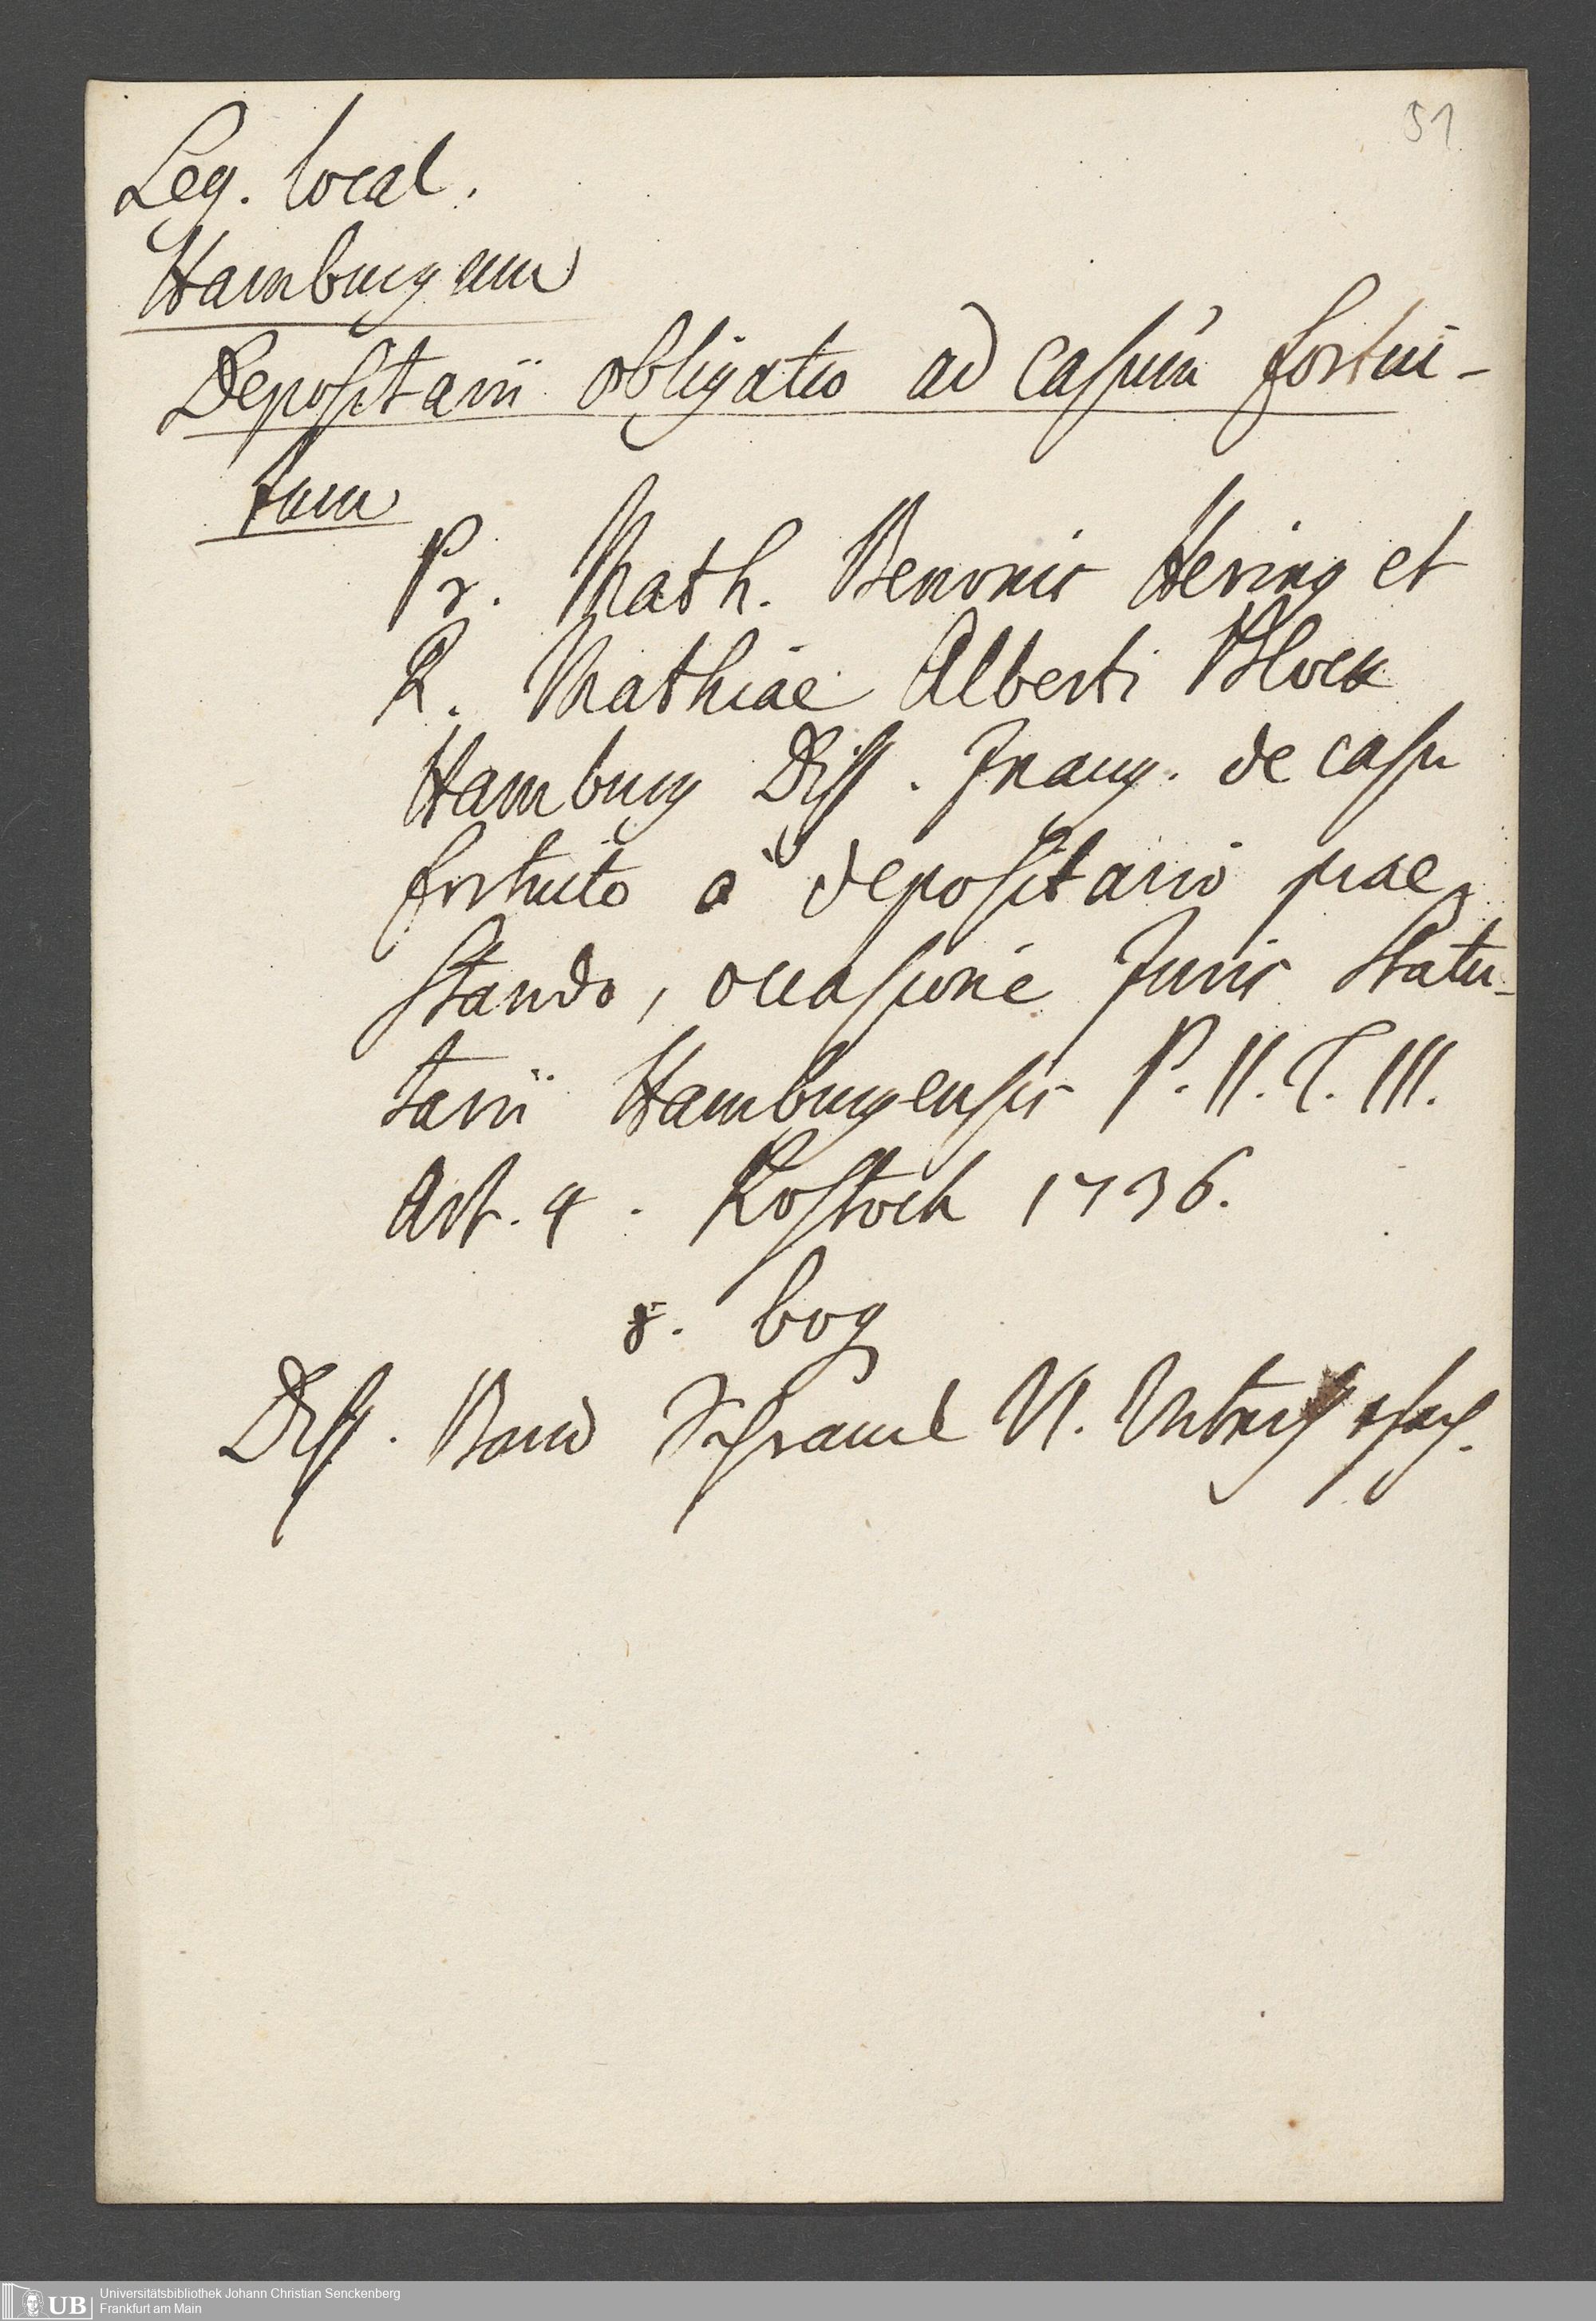 51
Leg. local.
Hamburgum
Depositarii obligatio ad casum fortui-
tum
Pr. Math. Benonis Hering et
R. Mathiae Alberti Block
Hamburg Diss. Inaug. de casu
fortuito à depositario prae
stando, occasione Juris Statu-
tarii Hamburgensis P. II. T. III.
Art. 4. Rostoch 1736.
8. bog
Diss. Band
Universitätsbibliothek Johann Christian Senckenberg
Frankfurt am Main
UB